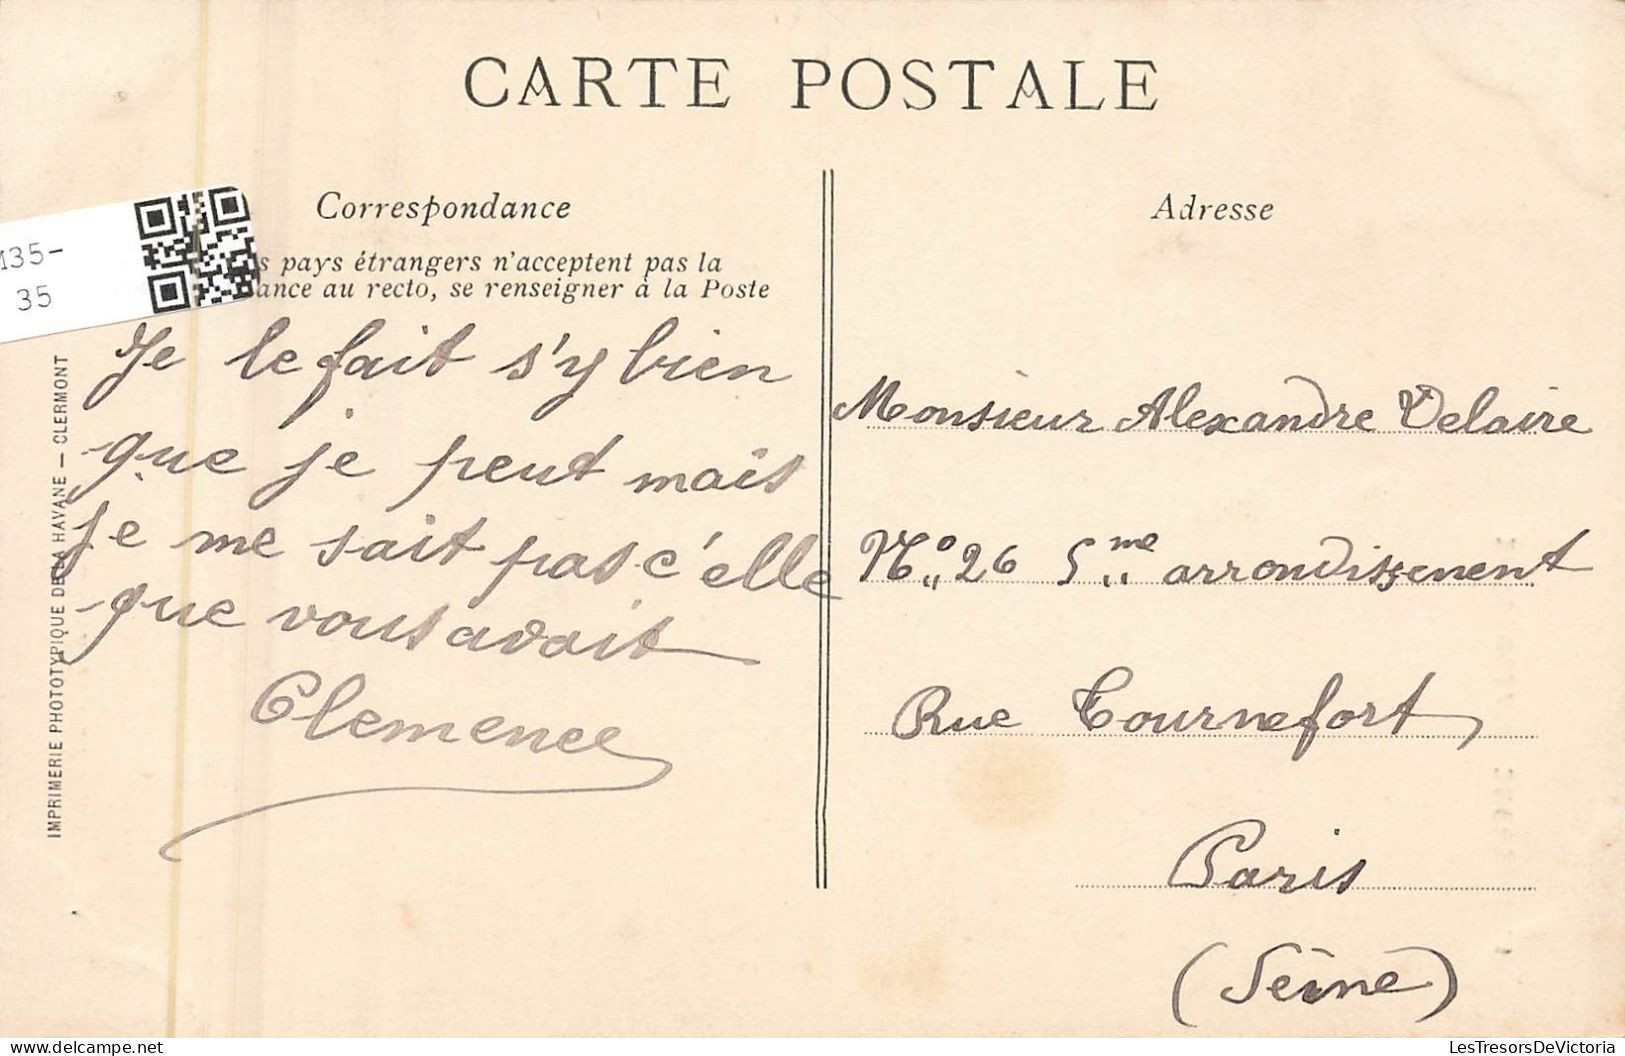 CARTE POSTALE
Correspondance
s pays étrangers n'acceptent pas la
ance au recto, se renseigner à la Poste
M35-
35
IMPRIMERIE PHOTOTYPIQUE DE LA HAVANE — CLERMONT
Je le fait s'y bien
que je peut mais
je me sait pas c'elle
que vous avait
Clemence
Adresse
Monsieur Alexandre Delaire
No 26 5me arrondissement
Rue Tournefort
Paris
(Seine)
LesTresorsDeVictoria